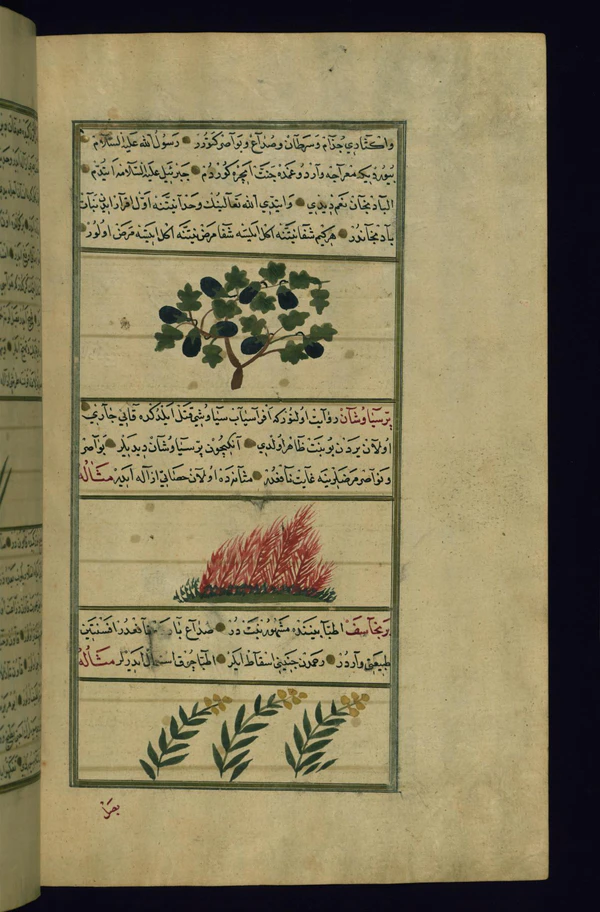 و اكثادي جذام و سرطان و صداع و بواصر كوتورر رسول الله عليه السلام
بيورديكه معراجه واردوغمده جنت ايچره كوردم جبرئيل عليه السلامه ايتدم
البادنجان نعم ديدي و ايتدي الله تعالينك وحدانيتنه اول اقرار ايدن نبات
بادنجاندر هر كيم شفا نيتنه اكل ايليه شفا مرض نيتنه اكل ايتسه مرض اولور
پرسياوشان روايت اولنور كه افراسياب سياوشي قتل ايلدكده قاني جاري
اولان يردن بو نبت ظاهر اولدي آنكچون پرسياوشان ديديلر بواصر
و نواصر مرضلرينه غايت نافعدر مثانه ده اولان حصاتي ازاله ايدر مثاله
برنجاسف اطبا بيننده مشهور نبت در صداع بارده نافعدر افسنتين
طبيعتي واردر رحمدن جنيني اسقاط ايلر اطبا چوق استعمال ايدرلر مثاله
بصل